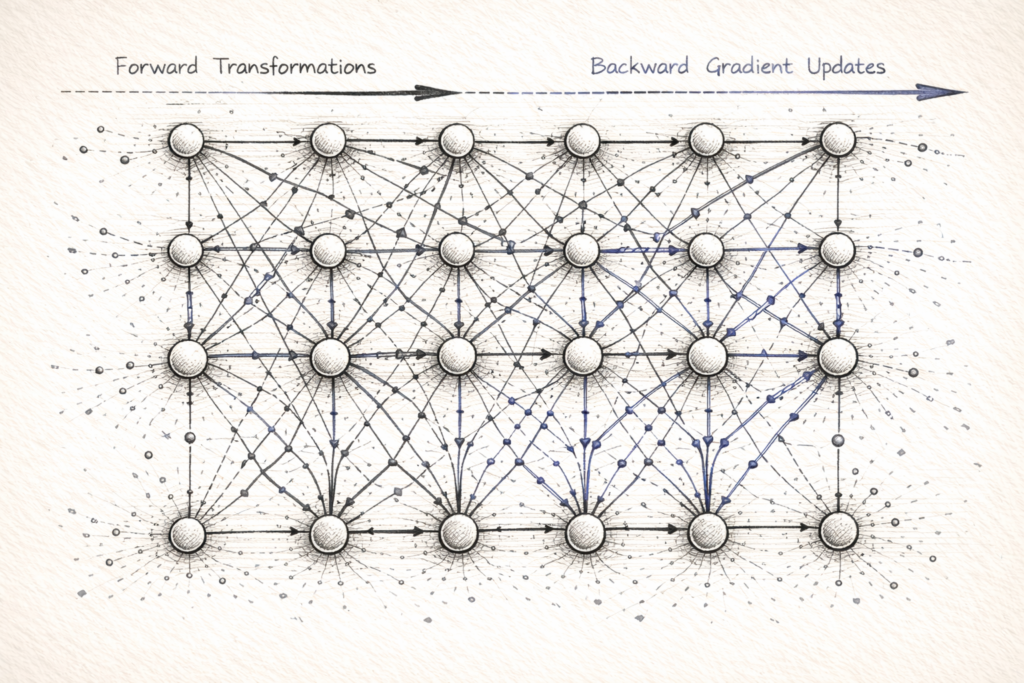 Forward Transformations
Backward Gradient Updates